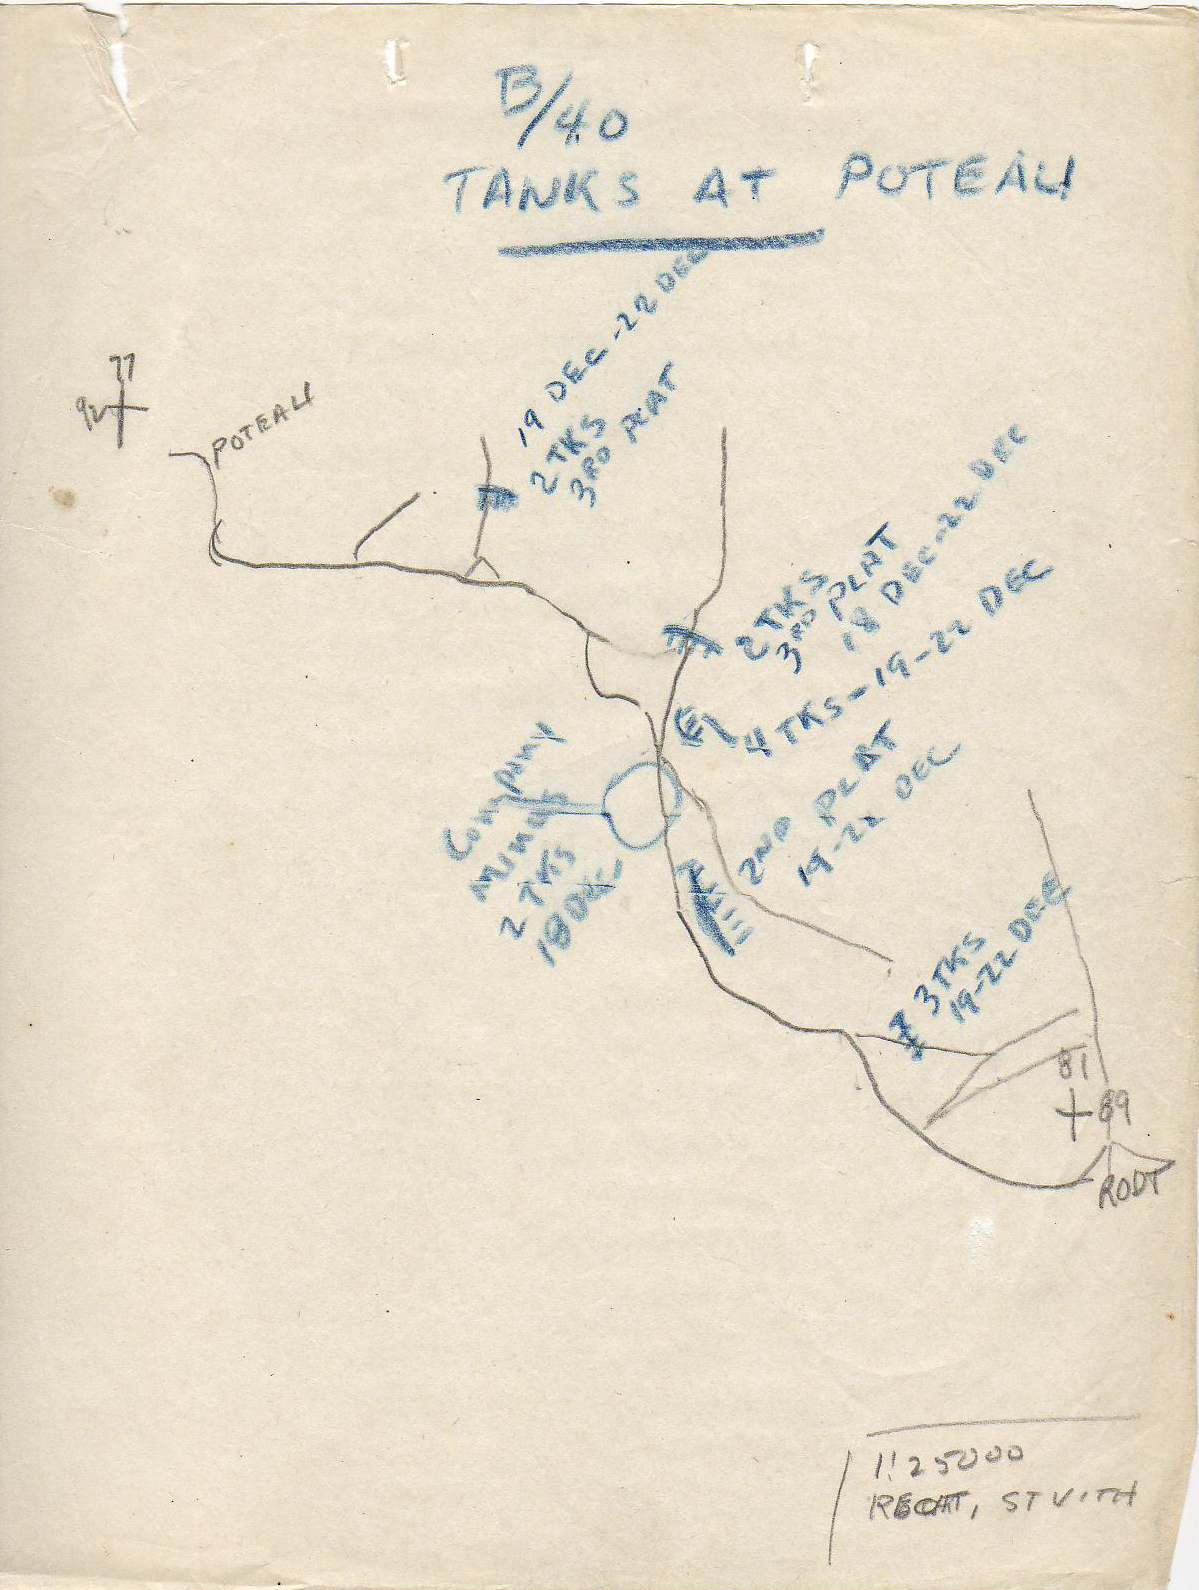 B/40
TANKS AT POTEAU
77
92
POTEAU
19 DEC - 22 DEC
2 TKS
3RD PLAT
2 TKS
3RD PLAT
18 DEC - 22 DEC
4 TKS - 19 - 22 DEC
Company
minus
2 TKS
18 DEC
2ND PLAT
19 - 22 DEC
3 TKS
19 - 22 DEC
81
89
RODT
1:25000
RECHT, ST VITH